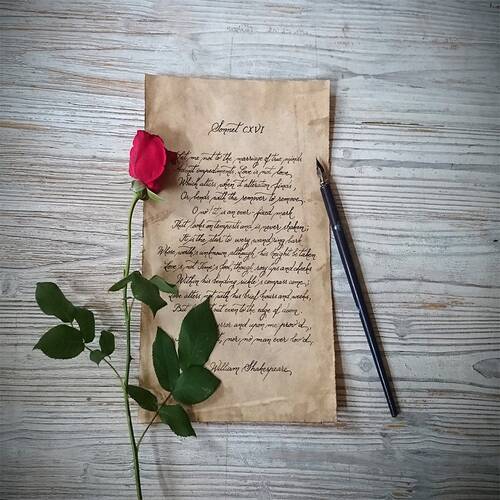 Sonnet CXVI
Let me not to the marriage of true minds
Admit impediments, Love is not love
Which alters when it alteration finds,
Or bends with the remover to remove,
O no! it is an ever fixed mark
That looks on tempests and is never shaken;
It is the star to every wand'ring bark
Whose worth's unknown although his height be taken
Love's not Time's fool, though rosy lips and cheeks
Within his bending sickle's compass come;
Love alters not with his brief hours and weeks,
But out even to the edge of doom
error and upon me prov'd,
nor no man ever lov'd,
William Shakespeare